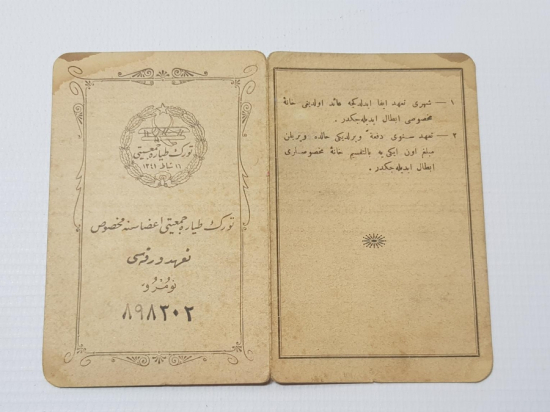 تورك طیاره جمعیتی
١٦ شباط ١٣٤١
تورك طیاره جمعیتی اعضاسنه مخصوص
تعهد ورقه‌سی
نومرو
٨٩٨٣٠٢
١ — شهری تعهد ایفا ایدلدكجه عائد اولدیغی خانهٔ
مخصوصی ابطال ایدیله‌جكدر .
٢ — تعهد سنوی دفعةً ویرلدیكی حالده ویریلن
مبلغ اون ایكی‌یه بالتقسیم خانهٔ مخصوصلری
ابطال ایدیله‌جكدر .